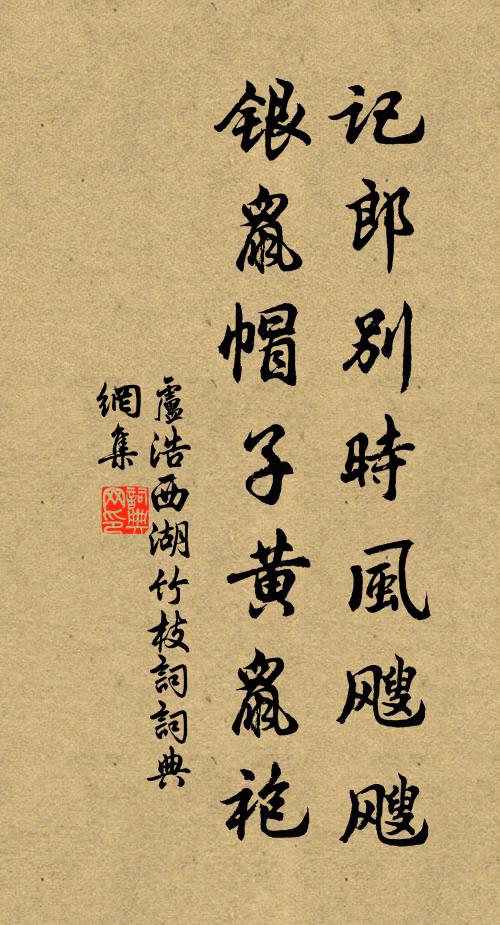 記郎別時風颼颼
銀鼠帽子黃鼠袍
盧浩西湖竹枝詞詞典
網集
詞典
网印